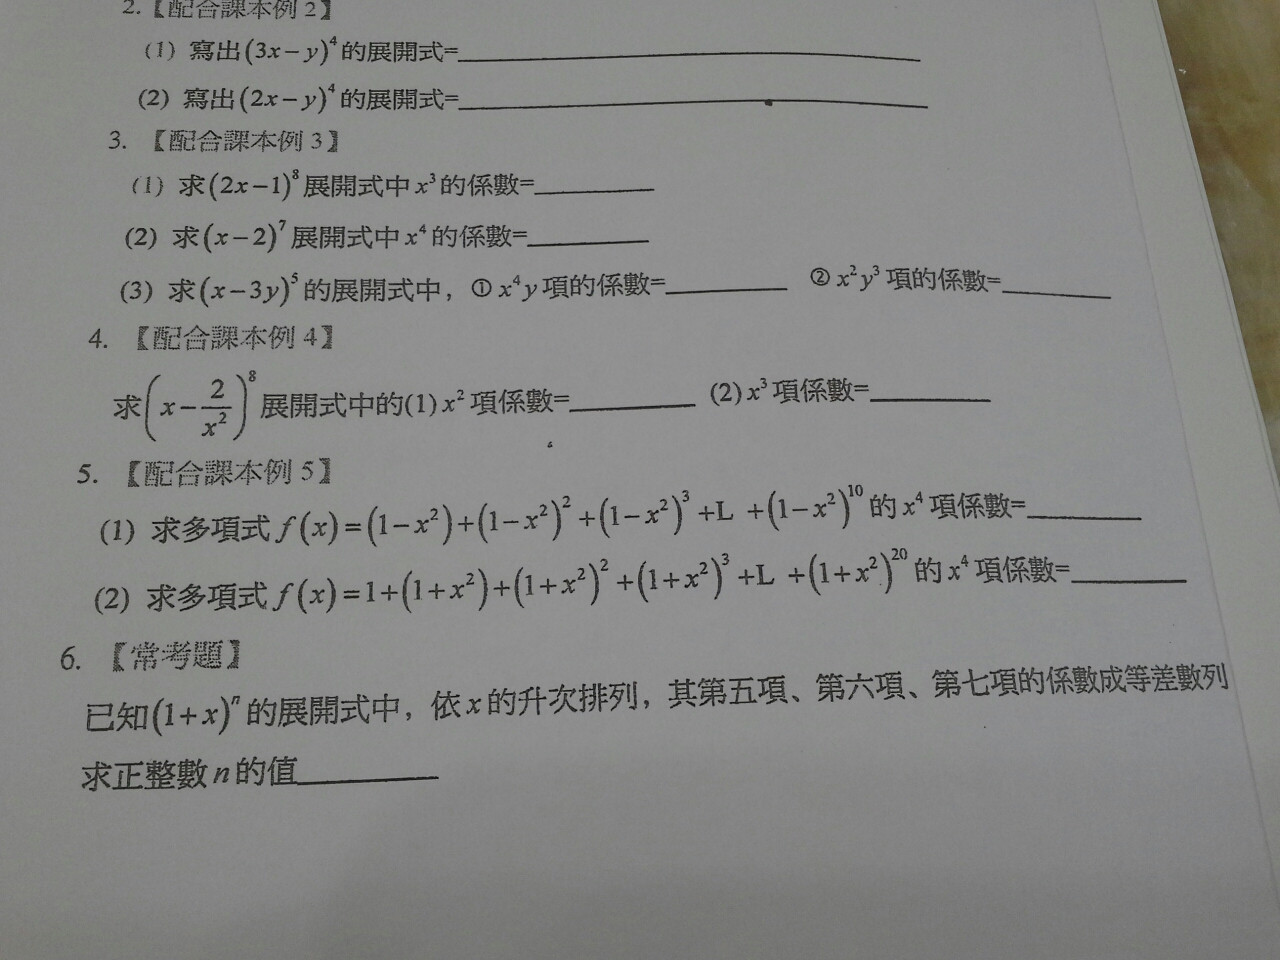 2.【配合課本例 2】
(1) 寫出(3x−y)⁴的展開式=
(2) 寫出(2x−y)⁴的展開式=
3. 【配合課本例 3】
(1) 求(2x−1)⁸展開式中x³的係數=
(2) 求(x−2)⁷展開式中x⁴的係數=
(3) 求(x−3y)⁵的展開式中，①x⁴y項的係數= ②x²y³項的係數=
4. 【配合課本例 4】
求(x−2/x²)⁸展開式中的(1)x²項係數= (2)x³項係數=
5. 【配合課本例 5】
(1) 求多項式f(x)=(1−x²)+(1−x²)²+(1−x²)³+L +(1−x²)¹⁰的x⁴項係數=
(2) 求多項式f(x)=1+(1+x²)+(1+x²)²+(1+x²)³+L +(1+x²)²⁰的x⁴項係數=
6. 【常考題】
已知(1+x)ⁿ的展開式中，依x的升次排列，其第五項、第六項、第七項的係數成等差數列
求正整數n的值